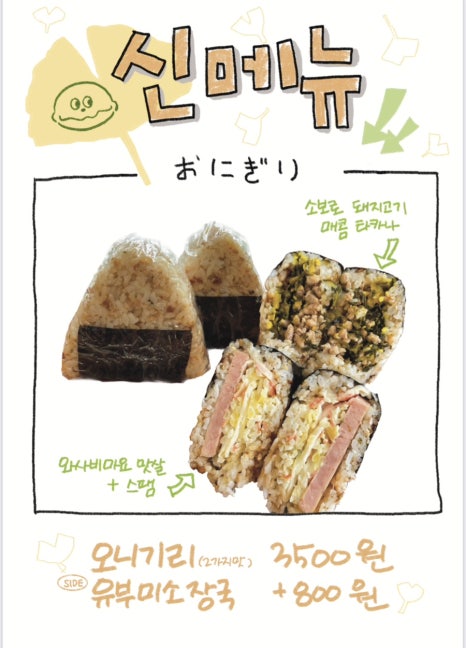 신메뉴
おにぎり
소보로 돼지고기
매콤 타카나
와사비마요 맛살
+ 스팸
오니기리 (2가지맛) 3500원
SIDE 유부미소장국 +800원